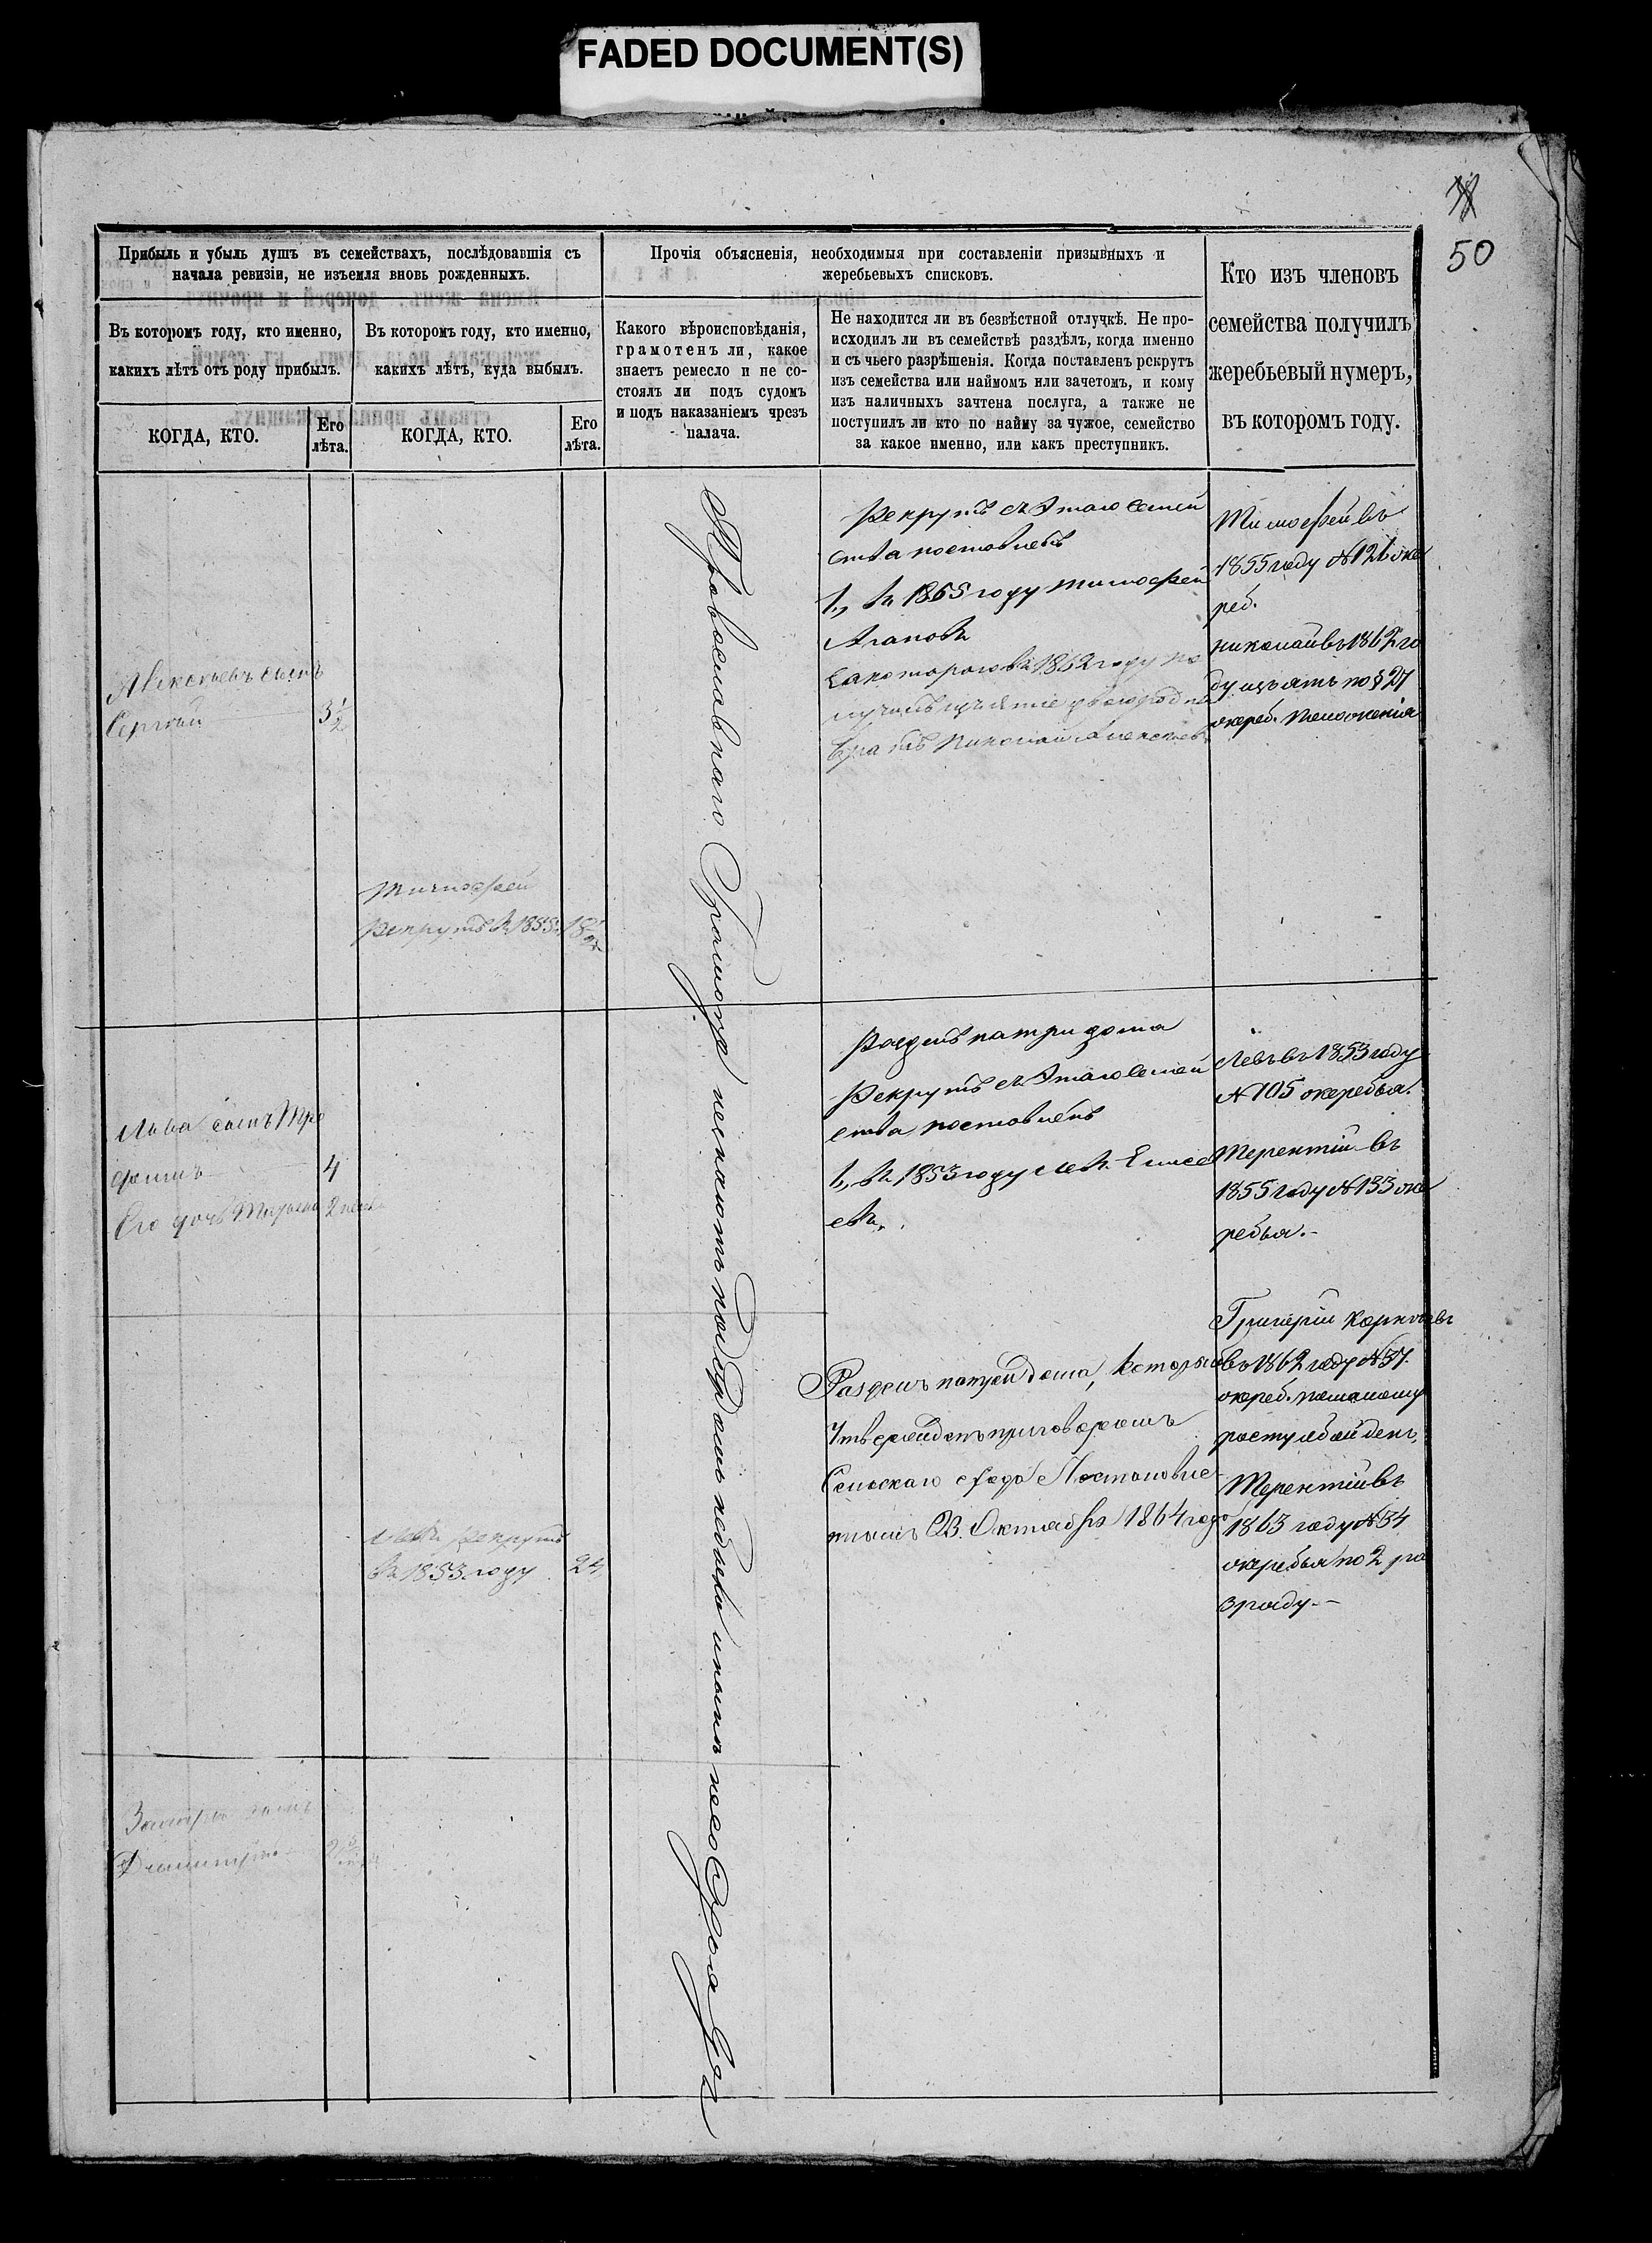 FADED DOCUMENT(S)
50
Прибыль и убыль душъ въ семействахъ, послѣдовавшія съ
начала ревизіи, не изъемля вновь рожденныхъ.
Въ которомъ году, кто именно,
какихъ лѣтъ отъ роду прибылъ.
КОГДА, КТО.
Его
лѣта.
Въ которомъ году, кто именно,
какихъ лѣтъ, куда выбылъ.
КОГДА, КТО.
Его
лѣта.
Прочія объясненія, необходимыя при составленіи призывныхъ и
жеребьевыхъ списковъ.
Какого вѣроисповѣданія,
грамотенъ ли, какое
знаетъ ремесло и не со-
стоялъ ли подъ судомъ
и подъ наказаніемъ чрезъ
палача.
Не находится ли въ безвѣстной отлучкѣ. Не про-
исходилъ ли въ семействѣ раздѣлъ, когда именно
и съ чьего разрѣшенія. Когда поставленъ рекрутъ
изъ семейства или наймомъ или зачетомъ, и кому
изъ наличныхъ зачтена послуга, а также не
поступилъ ли кто по найму за чужое, семейство
за какое именно, или какъ преступникъ.
Кто изъ членовъ
семейства получилъ
жеребьевый нумеръ,
въ которомъ году.
Алексѣевъ сынъ
Сергѣй 3½
Тимофей
рекрутъ въ 1855
Православнаго Грамотѣ незнаютъ подъ судомъ небыли
Рекрутъ съ этаго семей
ства поставленъ
1, въ 1855 году Тимофей
Агаповъ
за котораго въ 1862 году по
лучилъ изъятіе двоюродный
братъ Николай Алексѣевъ
Тимофей въ
1855 году №126 же
реб.
Николай въ 1862 го
ду изъятъ по § 27
жереб. положенія
Льва сынъ Тро
фимъ 4
Его дочь
Левъ рекрутъ
въ 1853 году 24
Раздѣлъ на три дома
Рекрутъ съ этаго семей
ства поставленъ
1, въ 1853 году Левъ Елисе
евъ.
Левъ въ 1853 году
№105 жеребья.
Терентій въ
1855 году №133 же
ребья.-
Раздѣлъ на три дома, который
Утвержденъ приговоромъ
Сельскаго схода
Октября 1864 года
Григорій Карповъ
въ 1862 году №37.
жереб. по малому
росту
Терентій въ
1863 году №34
жеребья по 2 ра
зряду.-
Захара сынъ
Дмитрій